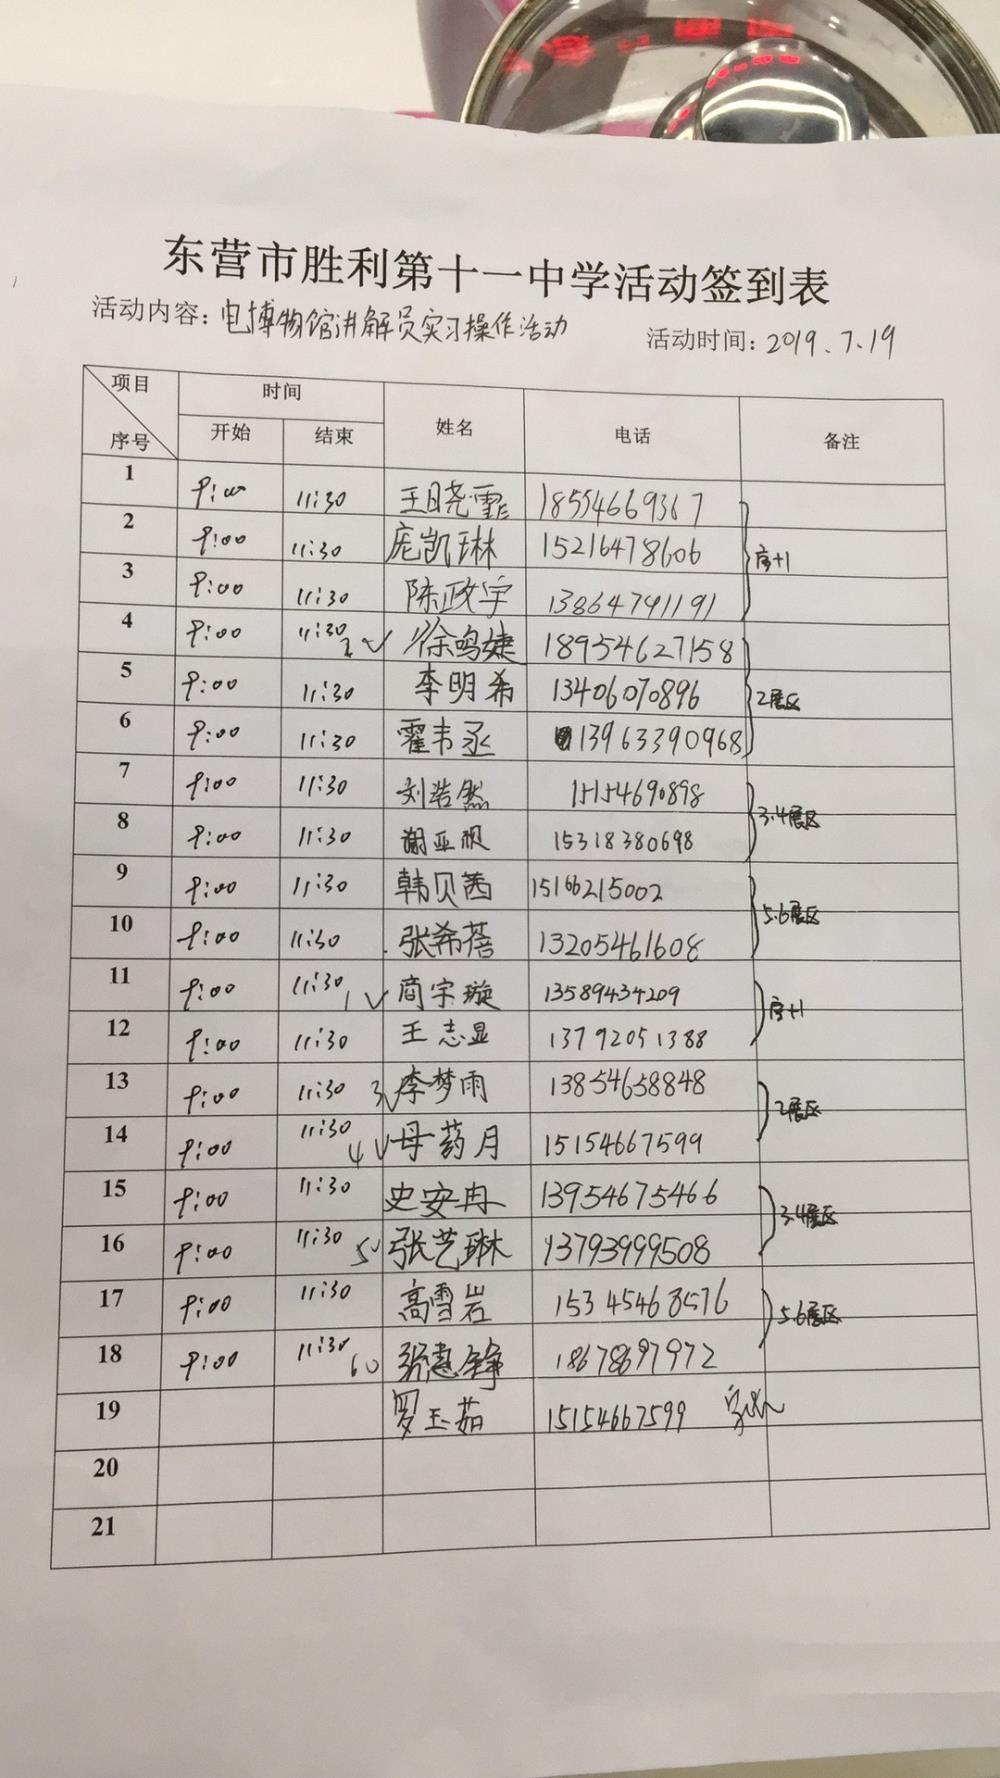 东营市胜利第十一中学活动签到表
活动内容：电博物馆讲解员实习操作活动 活动时间：2019.7.19
项目 时间 姓名 电话 备注
序号 开始 结束
1 9:00 11:30 王晓霏 18554669367
2 9:00 11:30 庞凯琳 15216478606 序+1
3 9:00 11:30 陈政宇 13864791191
4 9:00 11:30 2√ 徐鸣婕 18954627158
5 9:00 11:30 李明希 13406070896 2展区
6 9:00 11:30 霍韦丞 13963390968
7 9:00 11:30 刘浩然 15154690898 3.4展区
8 9:00 11:30 谢亚 15318380698
9 9:00 11:30 韩贝茜 15166215002 5.6展区
10 9:00 11:30 张希蓓 13205461608
11 9:00 11:30 1√ 商宇璇 13589434209 序+1
12 9:00 11:30 王志显 13792051388
13 9:00 11:30 3√ 李梦雨 13854658848 2展区
14 9:00 11:30 4√ 母药月 15154667599
15 9:00 11:30 史安冉 13954675466 3.4展区
16 9:00 11:30 5√ 张艺琳 13793999508
17 9:00 11:30 高雪岩 15345468576 5.6展区
18 9:00 11:30 6 张惠铮 18678697972
19 罗玉茹 15154667599
20
21